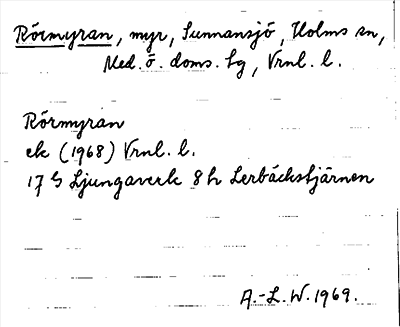 Rörmyran, myr, Sunnansjö, Holms sn,
Med. ö. doms. tg, Vrnl. l.
Rörmyran
ek (1968) Vrnl. l.
17 G Ljungaverk 8 h Lerbäckstjärnen
A.-L. W. 1969.